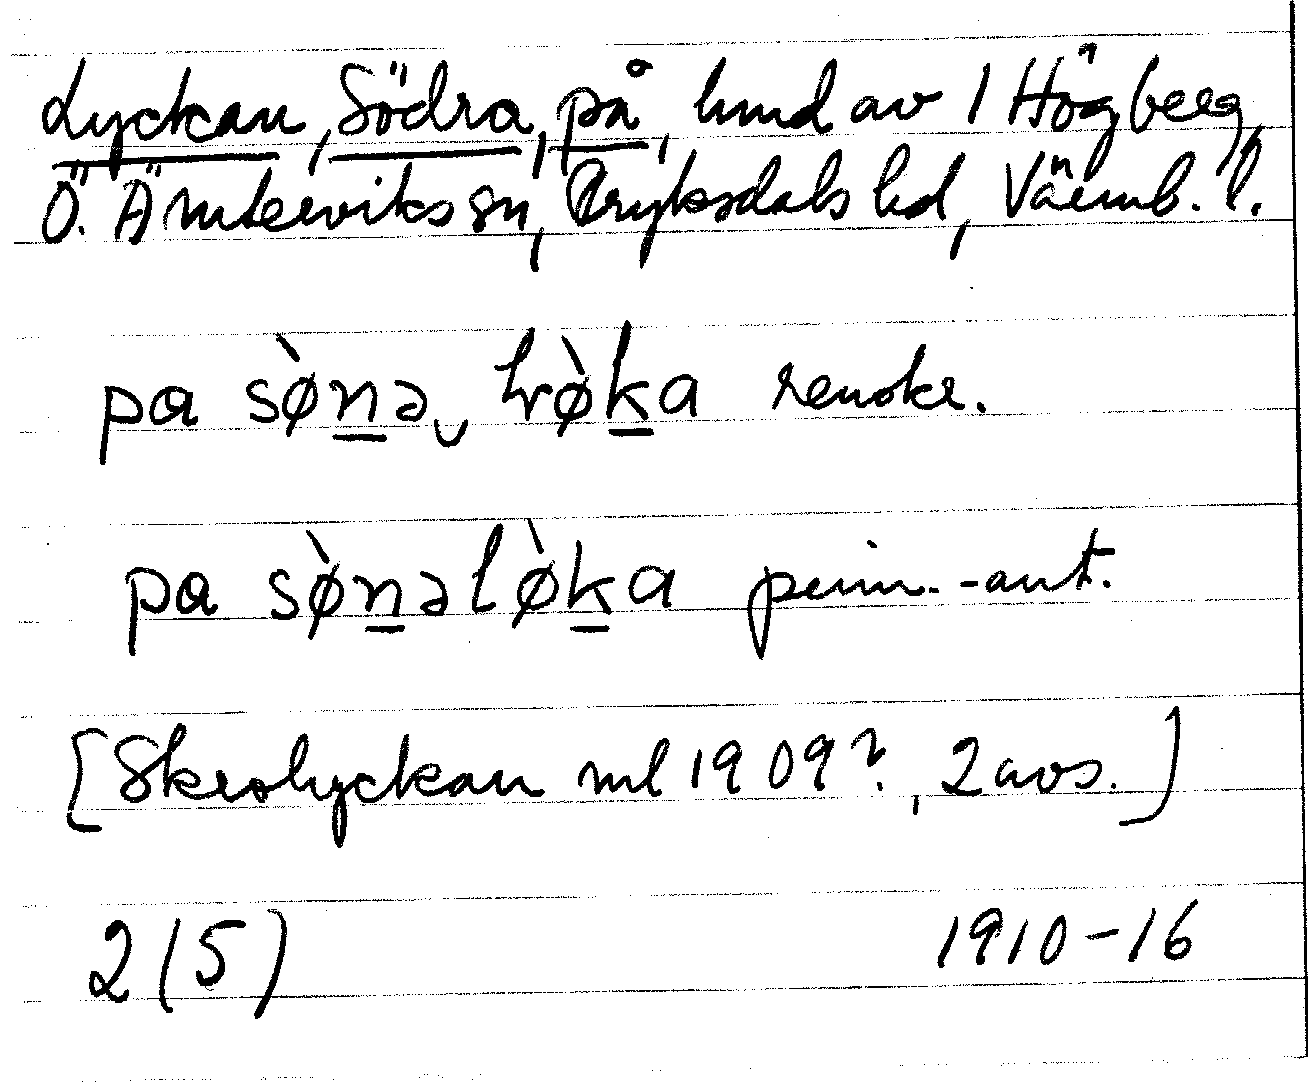 Lyckan, Södra, på, hmd av 1 Högberg,
Ö. Ämterviks sn, Fryksdals hd, Värmb. l.
pa sø̀nə‿ lø̀ka renskr.
pa sø̀nəlø̀ka prim.-ant.
[Skrolyckan ml 1909?, 2 avs.]
2 (5) 1910-16